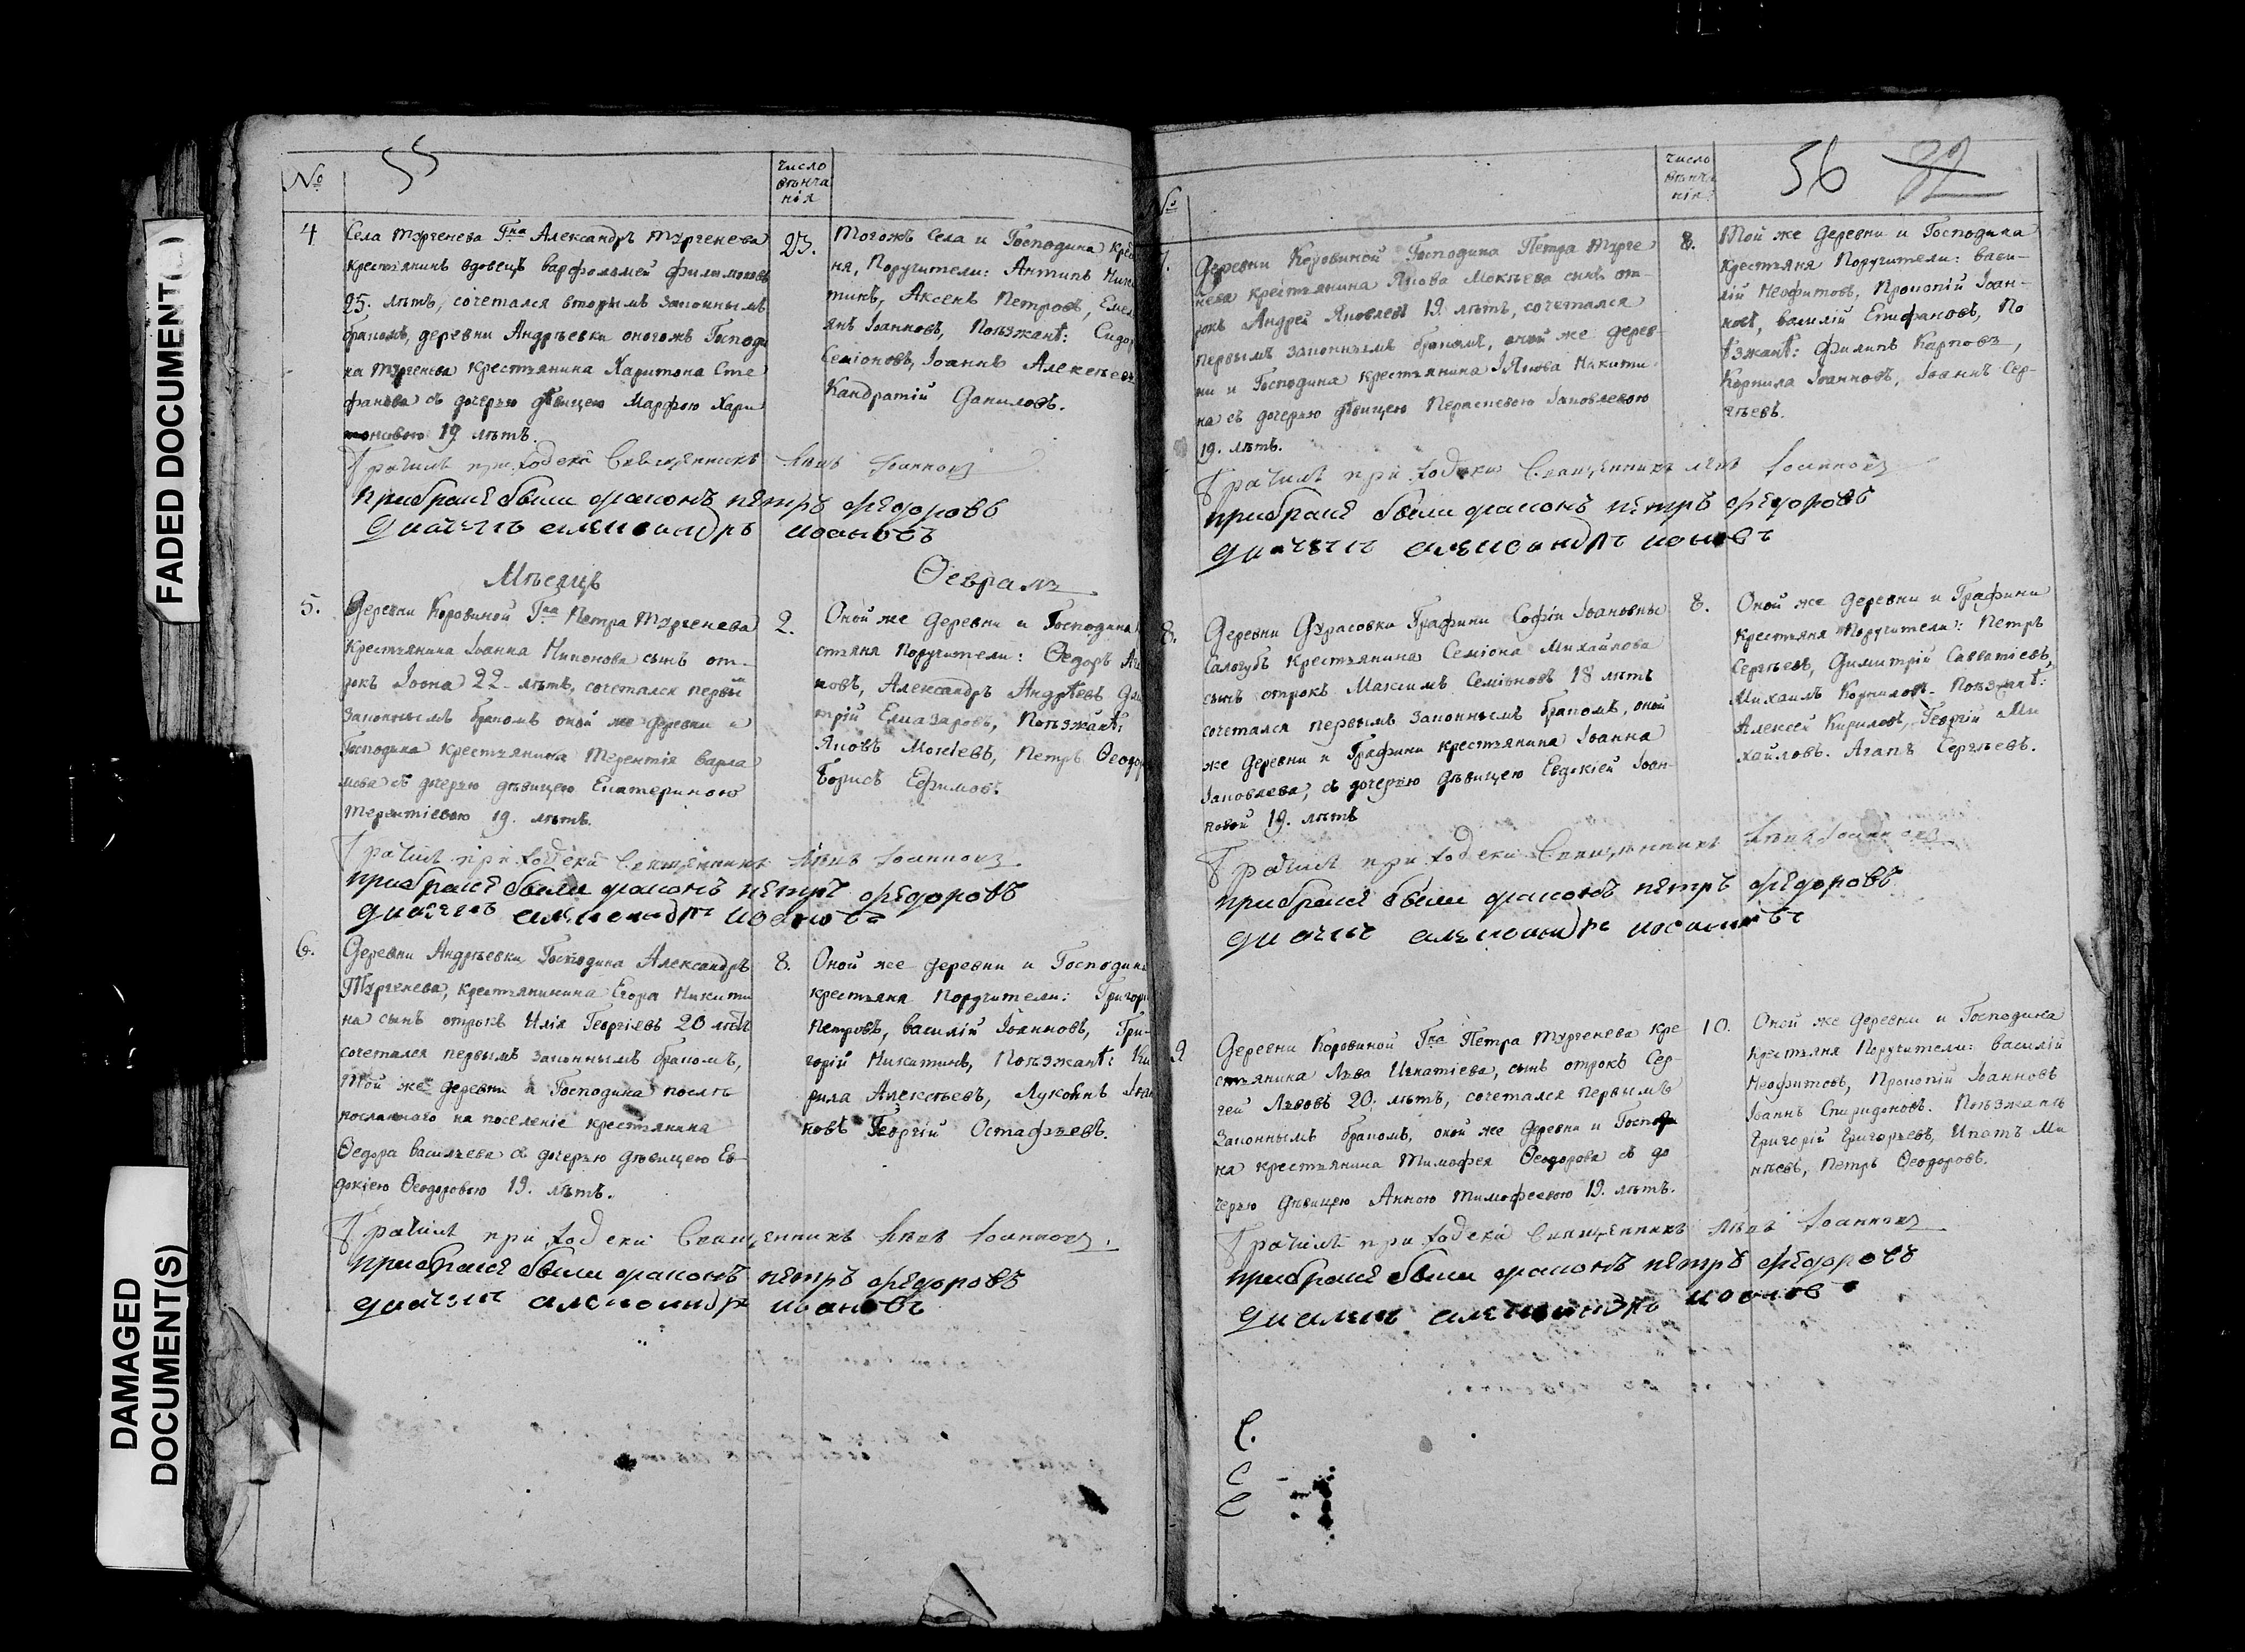 FADED DOCUMENT(S)
DAMAGED
DOCUMENT(S)
55
№
число
вѣнча
нія
4
Села Тургенева Гна Александръ Тургенева
крестьянинъ вдовецъ Варфоломей Филимоновъ
25. лѣтъ, сочетался вторымъ законнымъ
бракомъ, деревни Андрѣевки оногожъ Господи
на Тургенева крестьянина Харитона Сте
фанова съ дочерью дѣвицею Марфою Хари
тоновою 19 лѣтъ.
23.
Тогожъ Села и Господина кре
ня, Поручители: Антипъ Ники
тинъ, Аксенъ Петровъ, Емел
янъ Іоанновъ, Поѣзжанѣ: Сидор
Семіоновъ, Іоаннъ Алексѣевъ
Кандратій Даниловъ.
Браčилъ приходскй Священникъ Іоанновъ
прибраке были дьяконъ петръ федоровъ
дьячекъ александръ ивановъ
Мѣсяцъ Ѳевраль
5.
Деревни Коровиной Гна Петра Тургенева
Крестьянина Іоанна Никонова сынъ от-
рокъ Іоона 22 лѣтъ, сочетался первы
законнымъ бракомъ оной же деревни и
Господина крестьянина Терентія Варла
мова съ дочерью дѣвицею Екатериною
Терентіевою 19. лѣтъ.
2.
Оной же деревни и Господина
стьяня Поручители: Ѳедоръ
новъ, Александръ Андрѣевъ Дми
трій Елиазаровъ, Поѣзжанѣ:
Яковъ Мокіевъ, Петръ Ѳеодор
Борисъ Ефимовъ.
прибраке были дьяконъ петръ федоровъ
дьячекъ александръ ивановъ
6.
Деревни Андрѣевки Господина Александръ
Тургенева, крестьянинина Егора Никити
на сынъ отрокъ Илія Георгіевъ 20 лѣтъ
сочетался первымъ законнымъ бракомъ,
Той же деревни и Господина послѣ
посланаго на поселеніе крестьянина
Ѳедора Васильева съ дочерью дѣвицею Ев-
докіею Ѳеодоровою 19. лѣтъ.
8.
Оной же деревни и Господина
крестьяня Поручители: Григорі
Петровъ, Василій Іоанновъ, Гри-
горій Никитинъ, Поѣзжанѣ: Ки
рила Алексѣевъ, Лукоянъ Іоан
новъ Георгій Остафьевъ.
прибраке были дьяконъ петръ федоровъ
дьячекъ александръ ивановъ
56 32
№
число
вѣнча
нія
7.
Деревни Коровиной Господина Петра Турге
нева крестьянина Якова Мокѣева сынъ от-
рокъ Андрей Яковлевъ 19. лѣтъ, сочетался
первымъ законнымъ бракомъ, оной же дерев
ни и Господина крестьянина Якова Никити
на съ дочерью дѣвицею Параскевою Іаковлевою
19. лѣтъ.
8.
Той же деревни и Господина
крестьяня Поручители: Васи-
лій Неофитовъ, Прокопій Іоан-
новъ, Василій Епифановъ, По
ѣзжанѣ: Филипъ Карповъ,
Корнила Іоанновъ, Іоаннъ Сер-
гѣевъ.
прибраке были дьяконъ петръ федоровъ
дьячекъ александръ
8.
Деревни Дурасовки Графини Софіи Іоановны
Салогубъ крестьянина Семіона Михайлова
сынъ отрокъ Максимъ Семіоновъ 18 лѣтъ
сочетался первымъ законнымъ бракомъ, оной
же деревни и Графини крестьянина Іоанна
Іаковлева, съ дочерью дѣвицею Евдокіей Іоан-
новой 19. лѣтъ
8.
Оной же деревни и Графини
крестьяня Поручители: Петръ
Сергѣевъ, Димитрій Савватіевъ,
Михаилъ Корниловъ. Поѣзжанѣ:
Алексей Кириловъ, Георгій Ми
хайловъ. Агапъ Сергѣевъ.
прибраке были дьяконъ петръ федоровъ
9.
Деревни Коровиной Гна Петра Тургенева кре
стьянина Лева Игнатіева, сынъ отрокъ Сер-
гей Львовъ 20. лѣтъ, сочетался первымъ
законнымъ бракомъ, оной же деревни и Госпо
на крестьянина Тимофея Ѳеодорова съ до
черью дѣвицею Анною Тимофеевою 19. лѣтъ.
10.
Оной же деревни и Господина
крестьяня Поручители: Василій
Неофитовъ, Прокопій Іоанновъ
Іоаннъ Спиридоновъ. Поѣзжанѣ
Григорій Григорьевъ, Ипатъ Ми
нѣевъ, Петръ Ѳеодоровъ.
прибраке были дьяконъ петръ федоровъ